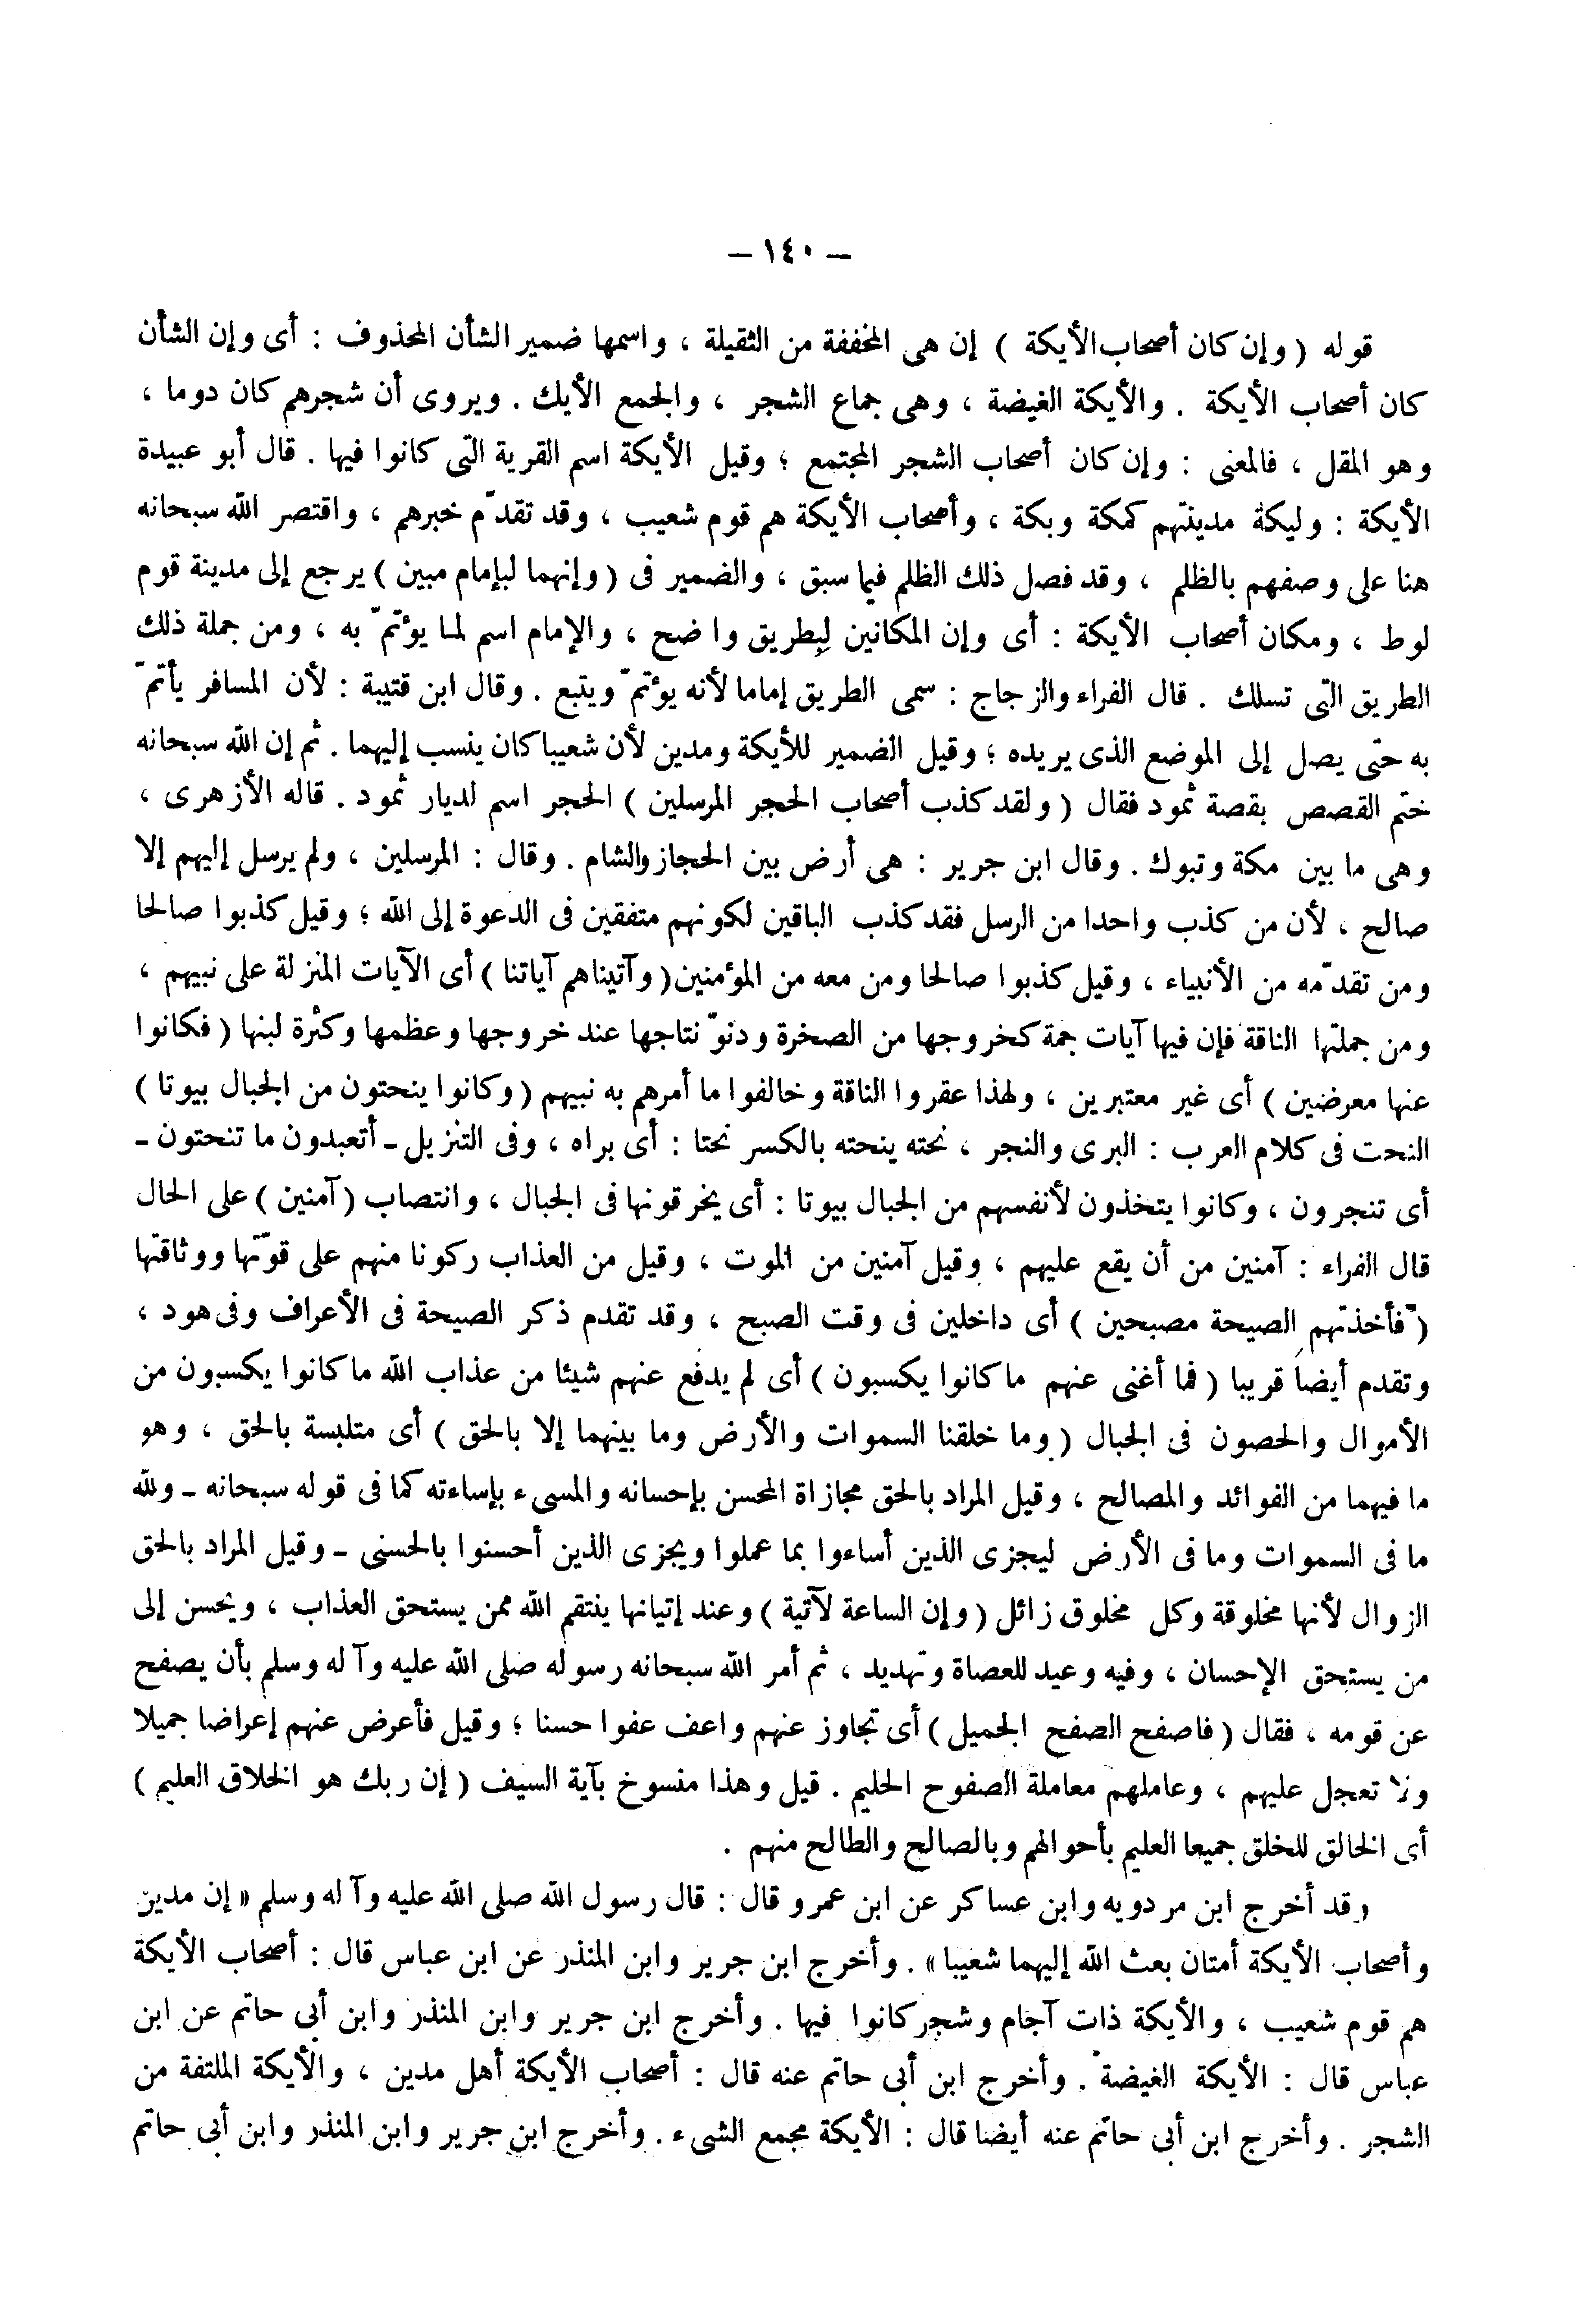 — ١٤٠ —
قوله ( وإن كان أصحاب الأيكة ) إن هى المخففة من الثقيلة ، واسمها ضمير الشأن المحذوف : أى وإن الشأن
كان أصحاب الأيكة . والأيكة الغيضة ، وهى جماع الشجر ، والجمع الأيك . ويروى أن شجرهم كان دوما ،
وهو المقل ، فالمعنى : وإن كان أصحاب الشجر المجتمع ؛ وقيل الأيكة اسم القرية التى كانوا فيها . قال أبو عبيدة
الأيكة : وليكة مدينتهم كمكة وبكة ، وأصحاب الأيكة هم قوم شعيب ، وقد تقدّم خبرهم ، واقتصر الله سبحانه
هنا على وصفهم بالظلم ، وقد فصل ذلك الظلم فيما سبق ، والضمير فى ( وإنهما لبإمام مبين ) يرجع إلى مدينة قوم
لوط ، ومكان أصحاب الأيكة : أى وإن المكانين لبِطريق واضح ، والإمام اسم لما يؤتمّ به ، ومن جملة ذلك
الطريق التى تسلك . قال الفراء والزجاج : سمى الطريق إماما لأنه يؤتمّ ويتبع . وقال ابن قتيبة : لأن المسافر يأتمّ
به حتى يصل إلى الموضع الذى يريده ؛ وقيل الضمير للأيكة ومدين لأن شعيبا كان ينسب إليهما . ثم إن الله سبحانه
ختم القصص بقصة ثمود فقال ( ولقد كذب أصحاب الحجر المرسلين ) الحجر اسم لديار ثمود . قاله الأزهرى ،
وهى ما بين مكة وتبوك . وقال ابن جرير : هى أرض بين الحجاز والشام . وقال : المرسلين ، ولم يرسل إليهم إلا
صالح ، لأن من كذب واحدا من الرسل فقد كذب الباقين لكونهم متفقين فى الدعوة إلى الله ؛ وقيل كذبوا صالحا
ومن تقدّمه من الأنبياء ، وقيل كذبوا صالحا ومن معه من المؤمنين ( وآتيناهم آياتنا ) أى الآيات المنزلة على نبيهم ،
ومن جملتها الناقة فإن فيها آيات جمة كخروجها من الصخرة ودنوّ نتاجها عند خروجها وعظمها وكثرة لبنها ( فكانوا
عنها معرضين ) أى غير معتبرين ، ولهذا عقروا الناقة وخالفوا ما أمرهم به نبيهم ( وكانوا ينحتون من الجبال بيوتا )
النحت فى كلام العرب : البرى والنجر ، نحته ينحته بالكسر نحتا : أى براه ، وفى التنزيل ـ أتعبدون ما تنحتون ـ
أى تنجرون ، وكانوا يتخذون لأنفسهم من الجبال بيوتا : أى يخرقونها فى الجبال ، وانتصاب ( آمنين ) على الحال
قال الفراء : آمنين من أن يقع عليهم ، وقيل آمنين من الموت ، وقيل من العذاب ركونا منهم على قوّتها ووثاقتها
( فأخذتهم الصيحة مصبحين ) أى داخلين فى وقت الصبح ، وقد تقدم ذكر الصيحة فى الأعراف وفى هود ،
وتقدم أيضا قريبا ( فما أغنى عنهم ما كانوا يكسبون ) أى لم يدفع عنهم شيئا من عذاب الله ما كانوا يكسبون من
الأموال والحصون فى الجبال ( وما خلقنا السموات والأرض وما بينهما إلا بالحق ) أى متلبسة بالحق ، وهو
ما فيهما من الفوائد والمصالح ، وقيل المراد بالحق مجازاة المحسن بإحسانه والمسىء بإساءته كما فى قوله سبحانه ـ ولله
ما فى السموات وما فى الأرض ليجزى الذين أساءوا بما عملوا ويجزى الذين أحسنوا بالحسنى ـ وقيل المراد بالحق
الزوال لأنها مخلوقة وكل مخلوق زائل ( وإن الساعة لآتية ) وعند إتيانها ينتقم الله ممن يستحق العذاب ، ويحسن إلى
من يستحق الإحسان ، وفيه وعيد للعصاة وتهديد ، ثم أمر الله سبحانه رسوله صلى الله عليه وآله وسلم بأن يصفح
عن قومه ، فقال ( فاصفح الصفح الجميل ) أى تجاوز عنهم واعف عفوا حسنا ؛ وقيل فأعرض عنهم إعراضا جميلا
ولا تعجل عليهم ، وعاملهم معاملة الصفوح الحليم . قيل وهذا منسوخ بآية السيف ( إن ربك هو الخلاق العليم )
أى الخالق للخلق جميعا العليم بأحوالهم وبالصالح والطالح منهم .
وقد أخرج ابن مردويه وابن عساكر عن ابن عمرو قال : قال رسول الله صلى الله عليه وآله وسلم « إن مدين
وأصحاب الأيكة أمتان بعث الله إليهما شعيبا » . وأخرج ابن جرير وابن المنذر عن ابن عباس قال : أصحاب الأيكة
هم قوم شعيب ، والأيكة ذات آجام وشجر كانوا فيها . وأخرج ابن جرير وابن المنذر وابن أبى حاتم عن ابن
عباس قال : الأيكة الغيضة . وأخرج ابن أبى حاتم عنه قال : أصحاب الأيكة أهل مدين ، والأيكة الملتفة من
الشجر . وأخرج ابن أبى حاتم عنه أيضا قال : الأيكة مجمع الشىء . وأخرج ابن جرير وابن المنذر وابن أبى حاتم